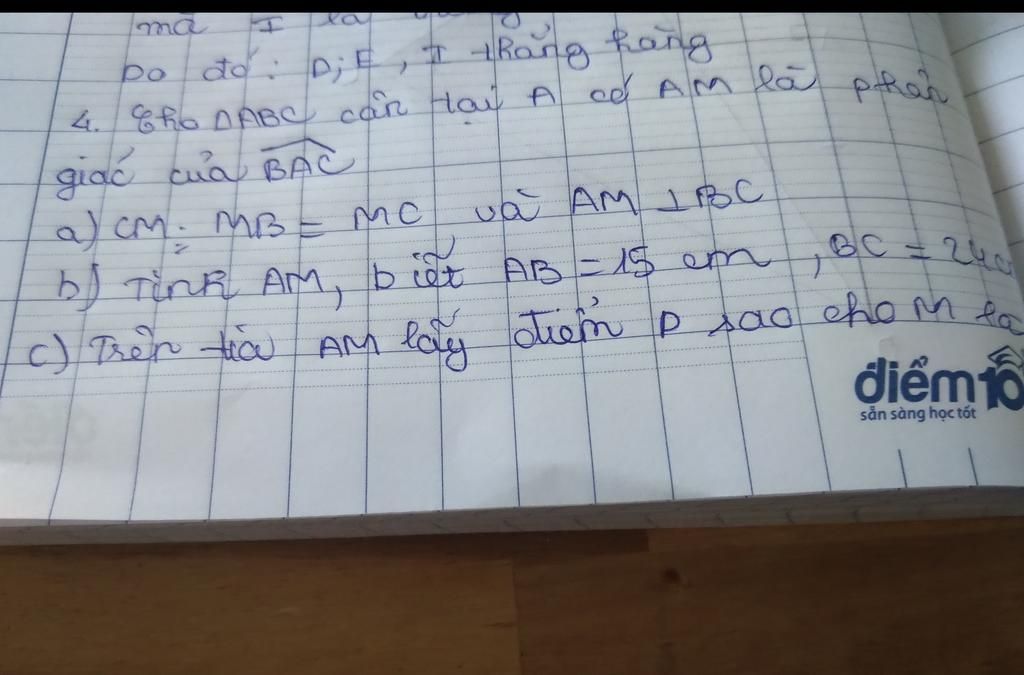 mà I là
Do đó: D; E, I thẳng hàng
4. Cho ΔABC cân tại A có AM là phân
giác của BAC
a) CM: MB = MC và AM ⊥ BC
b) Tính AM, biết AB = 15 cm, BC = 24c
c) Trên tia AM lấy điểm D sao cho M là
điểm 10
sẵn sàng học tốt